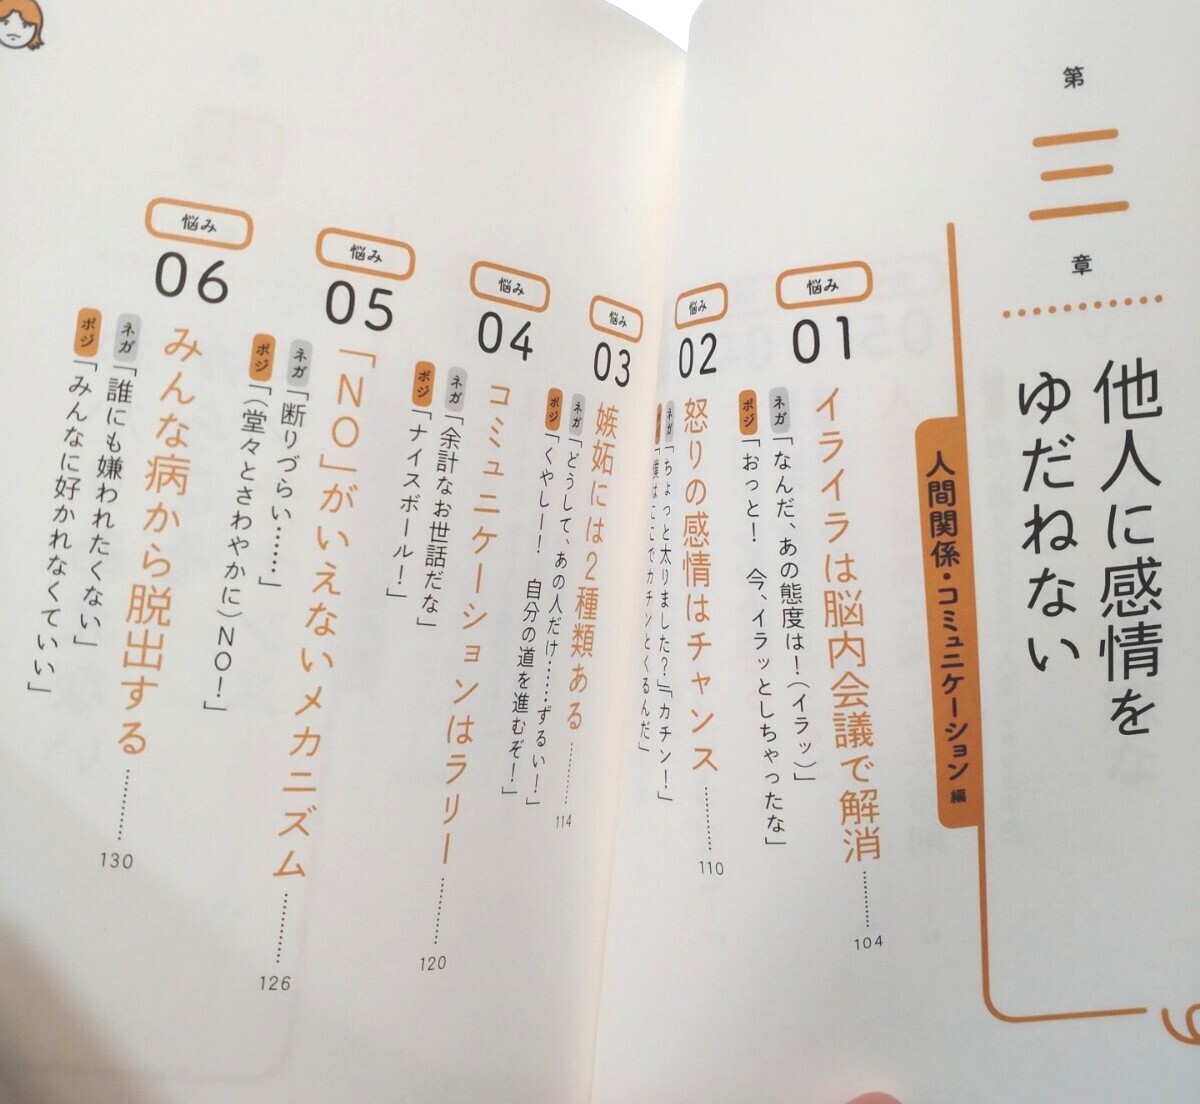 第三章
他人に感情を
ゆだねない
人間関係・コミュニケーション編
悩み
01
イライラは脳内会議で解消
104
ネガ「なんだ、あの態度は!(イラッ)」
ポジ「おっと! 今、イラッとしちゃったな」
悩み
02
怒りの感情はチャンス
110
ネガ「ちょっと太りました?」「カチン!」
ポジ「僕はここでカチンとくるんだ」
悩み
03
嫉妬には2種類ある
114
ネガ「どうして、あの人だけ……ずるい!」
ポジ「くやしー! 自分の道を進むぞ!」
悩み
04
コミュニケーションはラリー
120
ネガ「余計なお世話だな」
ポジ「ナイスボール!」
悩み
05
「NO」がいえないメカニズム
126
ネガ「断りづらい……」
ポジ「(堂々とさわやかに)NO!」
悩み
06
みんな病から脱出する
130
ネガ「誰にも嫌われたくない」
ポジ「みんなに好かれなくていい」